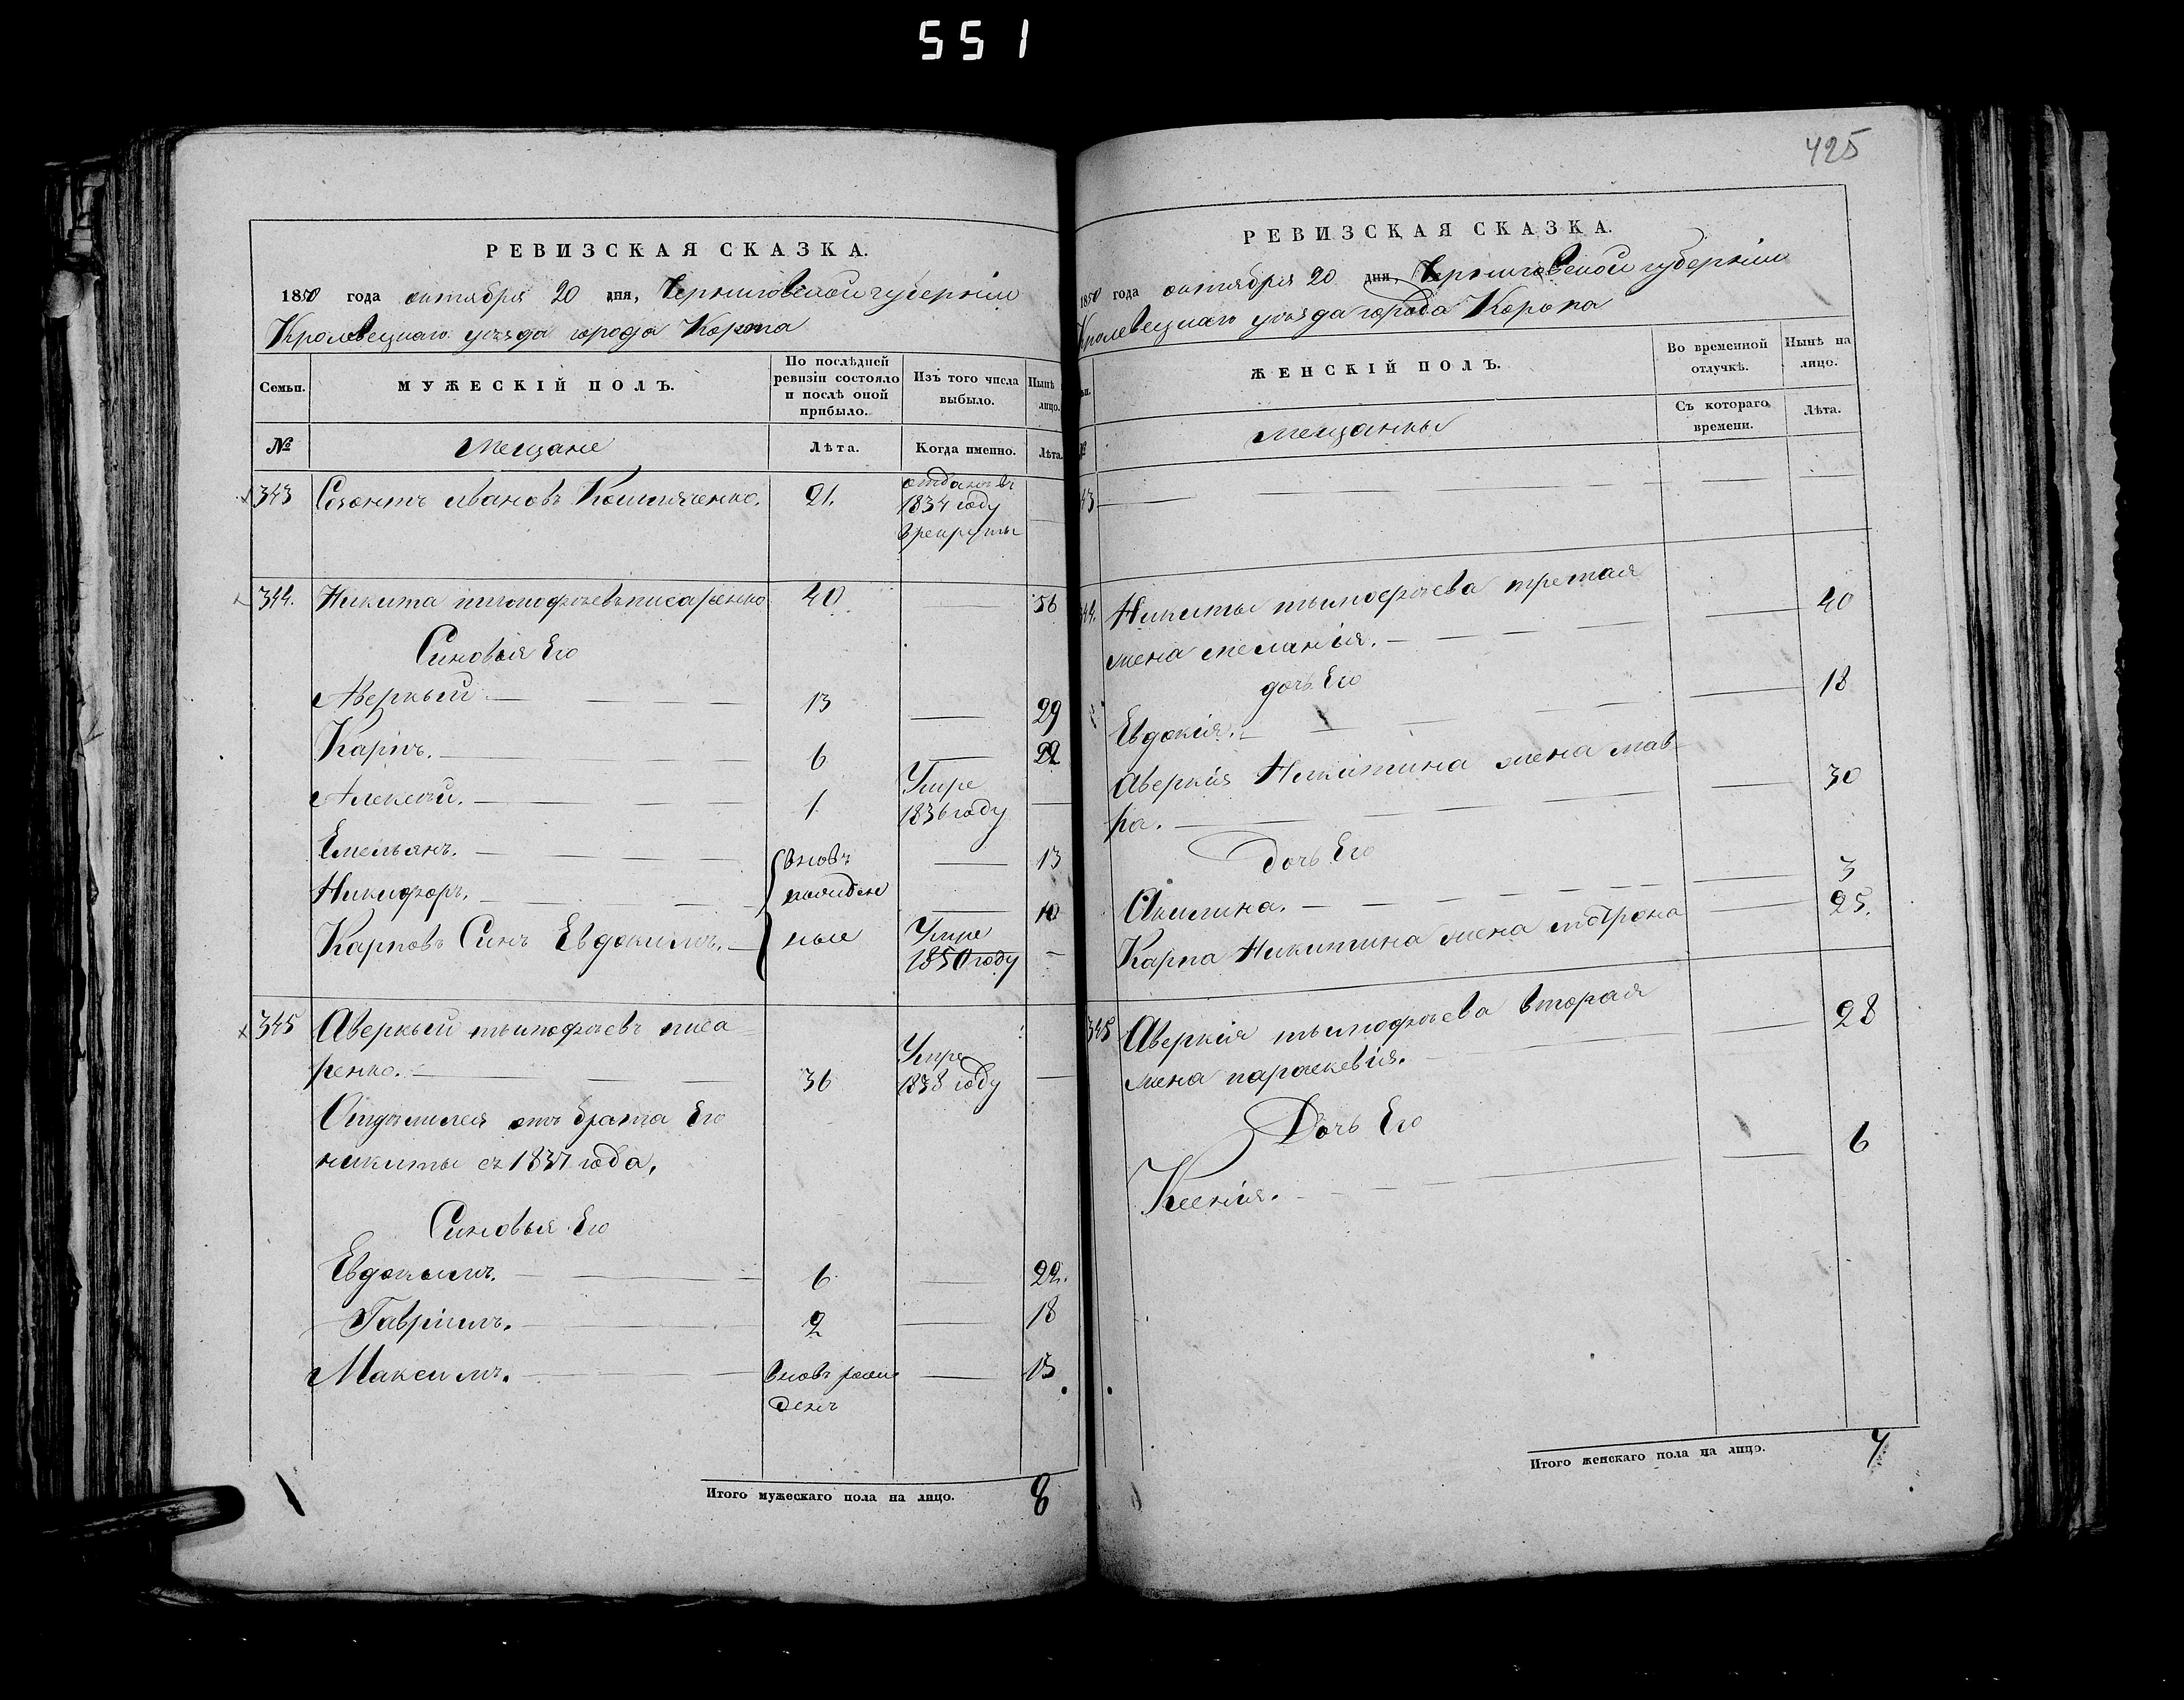 551
РЕВИЗСКАЯ СКАЗКА.
1850 года октября 20 дня, Черниговской губернiи
Кролевецкаго уезда города Коропа
Семьи.
МУЖЕСКІЙ ПОЛЪ.
По послѣдней
ревизіи состояло
и послѣ оной
прибыло.
Изъ того числа
выбыло.
Нынѣ
лицо.
№
Мещане
Лѣта.
Когда именно.
Лѣта.
343 Созонтъ Ивановъ 21.
отданъ въ
1834 году
в рекруты
344. Никита тимофеевъ писаренко 40 56
Синовья Его
Аверкий 13 29
Карпъ. 6 22
Алексей. 1 Умре
1836 году
Емельянъ. вновь 13
Никифоръ. рожден 10
Карповъ Синъ Евдокимъ. ные Умре
1850 году
345 Аверкий тимофеевъ писа
ренко. 36 Умре
1838 году
Отделился отъ брата Его
никиты съ 1837 года.
Синовья Его
Евдокимъ. 6 22.
Гавриилъ. 2 18
Максимъ. вновь рож 15
денъ
Итого мужескаго пола на лицо. 8
425
РЕВИЗСКАЯ СКАЗКА.
1850 года октября 20 дня, Черниговской губернiи
Кролевецкаго уезда города Коропа
ЖЕНСКІЙ ПОЛЪ.
Во временной
отлучкѣ.
Нынѣ на
лицо.
мещанки
Съ котораго
времени.
Лѣта.
43
344. Никиты тимофеева третая
жена меланія. 40
дочь Его
Евдокія. 18
Аверкія Никитина жена мав
ра. 30
Дочь Его
Акилина. 3
Карпа Никитина жена матрона 25.
345 Аверкія тимофеева вторая
жена параскевія. 28
Дочь Его
Ксенія. 6
Итого женскаго пола на лицо. 7